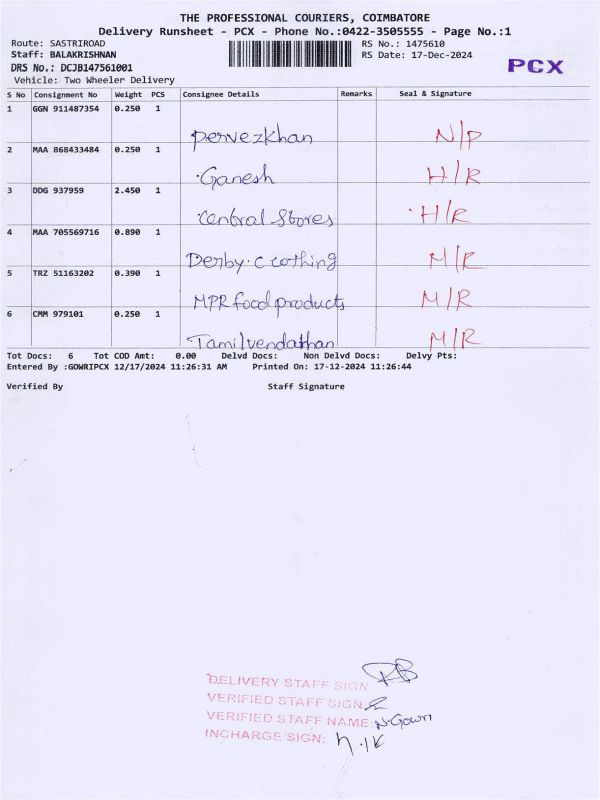 THE PROFESSIONAL COURIERS, COIMBATORE
Delivery Runsheet - PCX - Phone No.:0422-3505555 - Page No.:1
Route: SASTRIROAD RS No.: 1475610
Staff: BALAKRISHNAN RS Date: 17-Dec-2024
DRS No.: DCJB147561001 PCX
Vehicle: Two Wheeler Delivery
S No Consignment No Weight PCS Consignee Details Remarks Seal & Signature
1 GGN 911487354 0.250 1
Pervezkhan N/P
2 MAA 868433484 0.250 1
Ganesh H/R
3 DDG 937959 2.450 1
Central Stores H/R
4 MAA 705569716 0.890 1
Derby.c cothing M/R
5 TRZ 51163202 0.390 1
MPR food products M/R
6 CMM 979101 0.250 1
Tamilvendathan M/R
Tot Docs: 6 Tot COD Amt: 0.00 Delvd Docs: Non Delvd Docs: Delvy Pts:
Entered By :GOWRIPCX 12/17/2024 11:26:31 AM Printed On: 17-12-2024 11:26:44
Verified By Staff Signature
DELIVERY STAFF SIGN:
VERIFIED STAFF SIGN:
VERIFIED STAFF NAME: N.Gowri
INCHARGE SIGN: